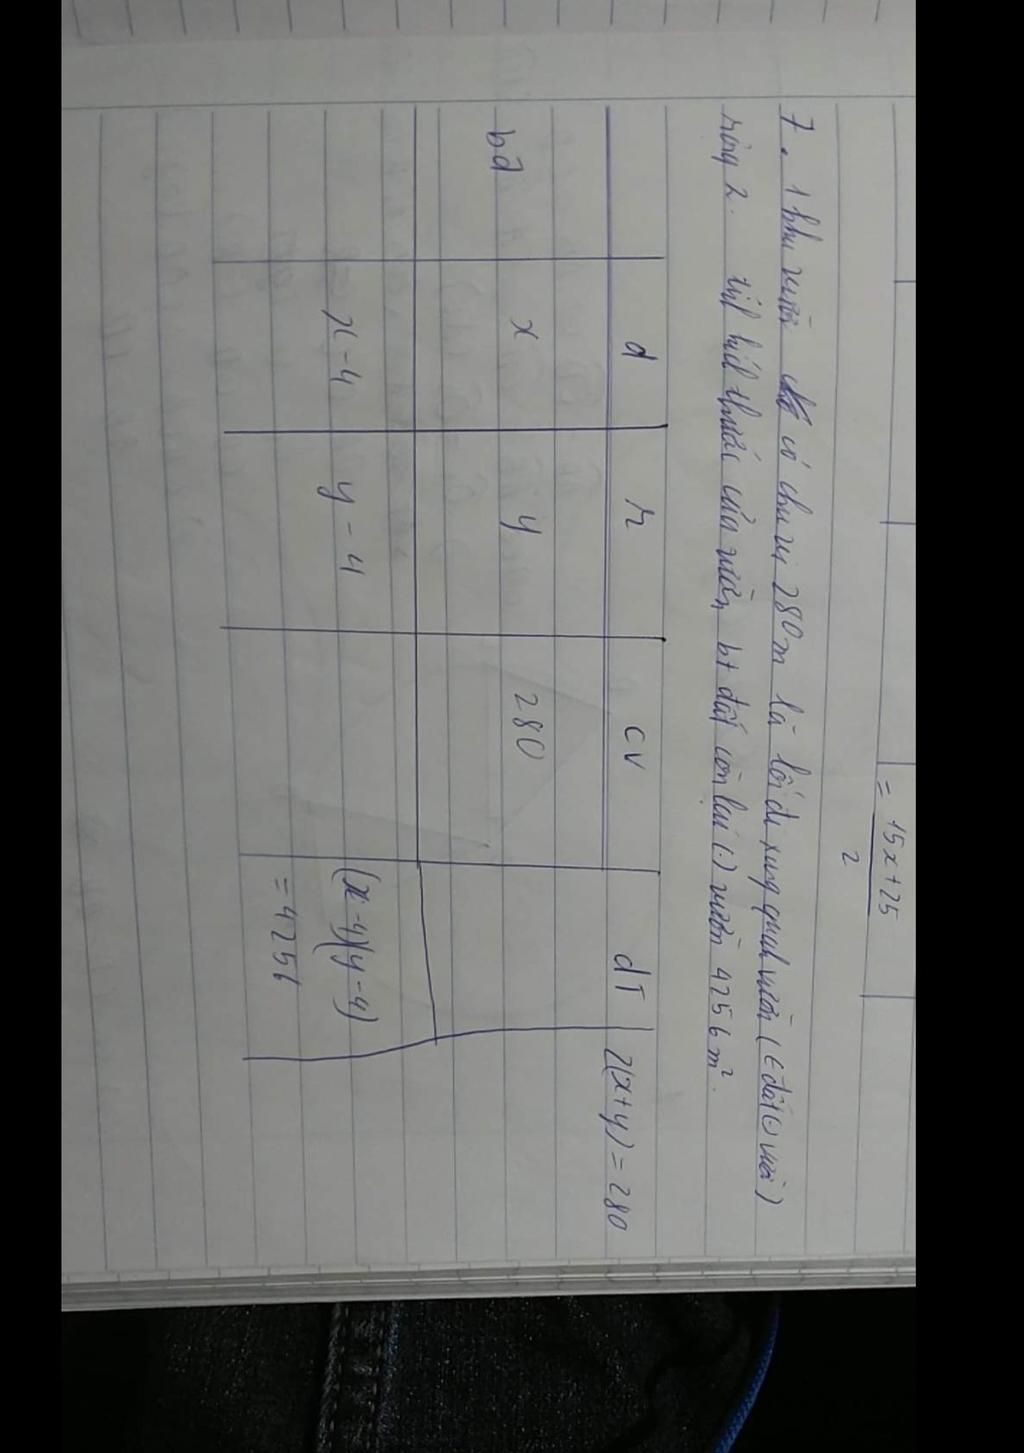 = 15x+25 / 2
7. 1 khu vườn có chu vi 280m là lối đi xung quanh vườn (∈ đất (·) vườn)
rộng 2. tịnh kích thước của vườn, bt đất còn lại (·) vườn 4256m².
d r cv dT 2(x+y) = 280
bđ x y 280
x-4 y-4 (x-4)(y-4)
= 4256